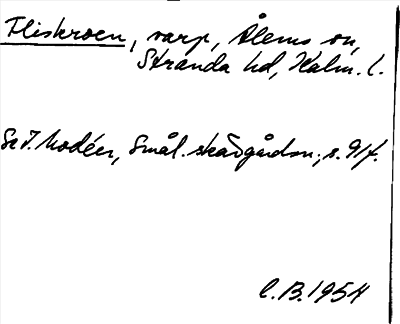 Fliskroen, varp, Ålems sn,
Stranda hd, Kalm. l.
Se I. Modéer, Smål. skärgårdsn., s. 91 f.
C.B. 1954